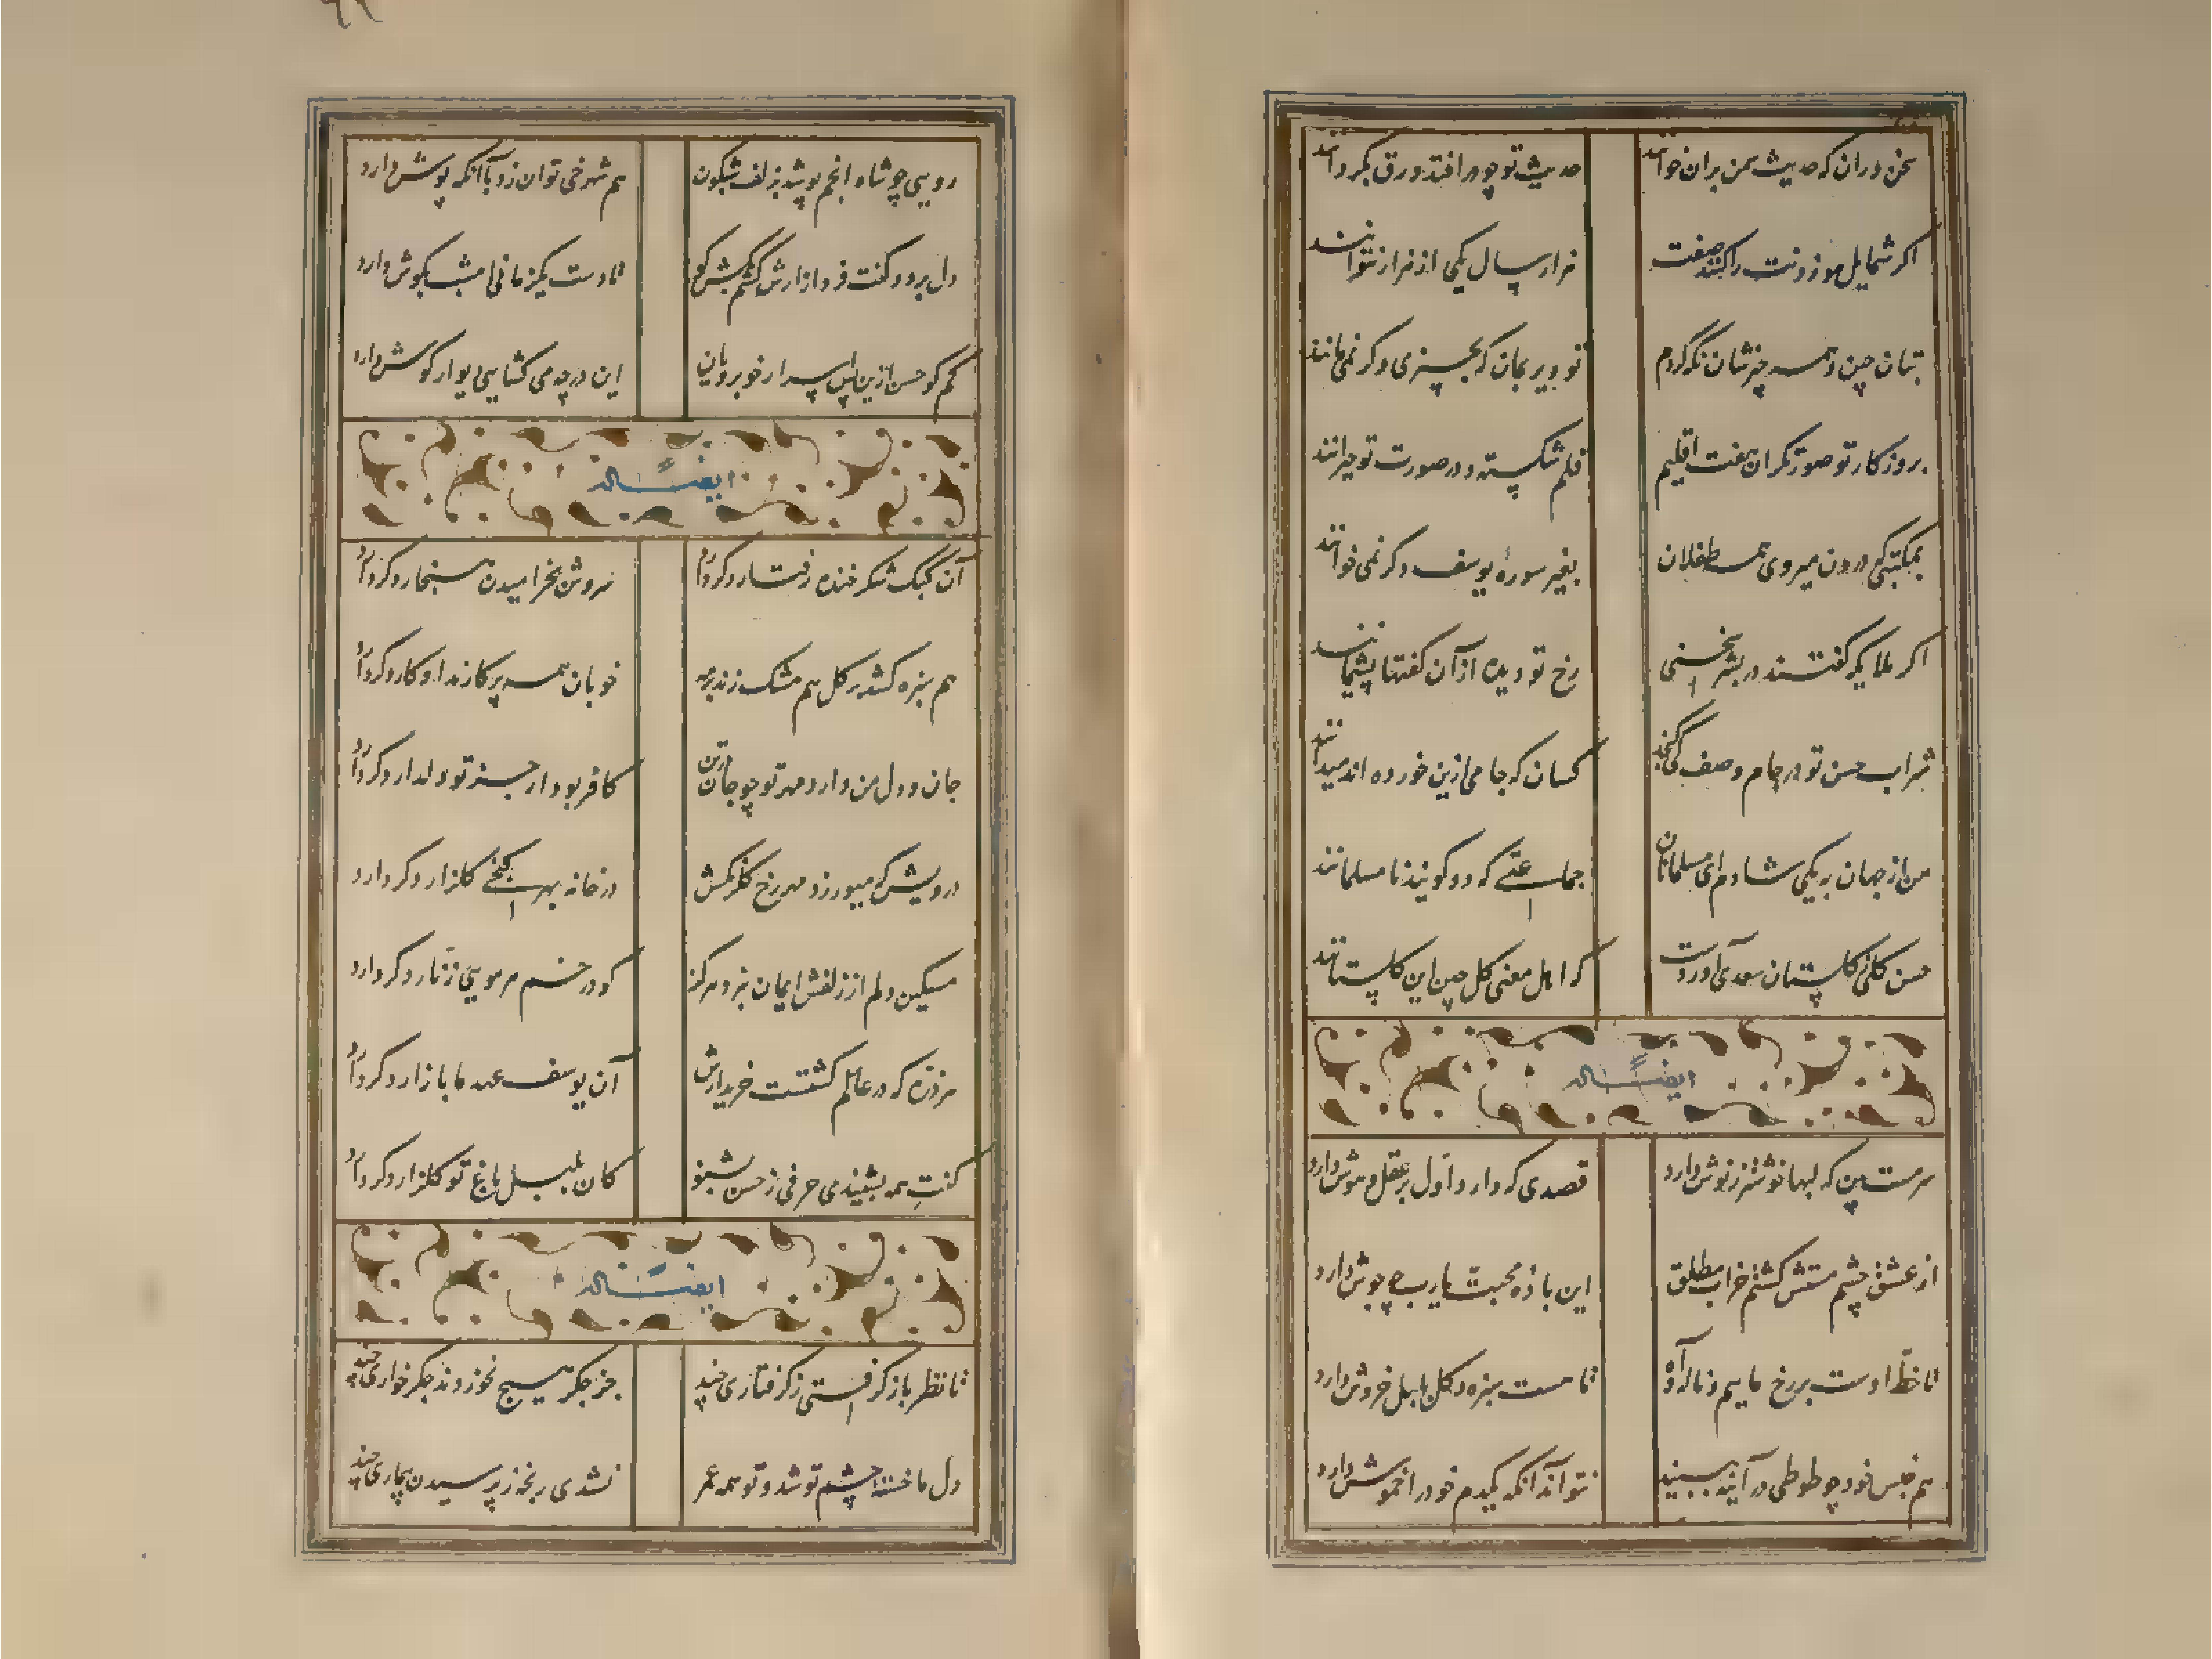 سخن وران که حدیث سمن بران خوانند
حدیث تو چو در افتد ورق بگردانند
اگر شمایل موزونت را کنند صفت
هزار سال یکی از هزار نتوانند
بتان چین و همه چیزشان نگه کردم
تو دیر بمان که بچیزی دگر نمی‌مانند
بروزگار تو صورتگران هفت اقلیم
قلم شکسته و در صورت تو حیرانند
بمکتبی که درون میروی همه طفلان
بغیر سورهٔ یوسف دگر نمی‌خوانند
اگر ملایکه گفتند در بشر سخنی
رخ تو دیده از آن گفتها پشیمانند
شراب حسن تو در جام وصف کی گنجد
کسان که جامی ازین خورده اند میدانند
من از جهان به یکی شادم ای مسلمانان
جماعتی که دو گویند نامسلمانند
حسن گلی ز گلستان سعدی آوردست
که اهل معنی گل چین این گلستانند
ایضاً له
سرمست بین که لبها نوشش ز نوش دارد
قصدی که دارد اول بر عقل و هوش دارد
از عشق چشم مستش گشتم خراب مطلق
این باده محبت یارب چه جوش دارد
تا خط اوست بر رخ ماییم و ناله و آه
تا هست سبزه و گل بلبل خروش دارد
هم جنس خود چو طوطی در آینه ببیند
نتواند آنکه یکدم خود را خموش دارد
رویی چو شاه انجم پوشد بزلف شبگون
هم شهرخی توان زد با آنکه پوش دارد
دل برد و گفت فردا باز آرش گشم بشب گو
تا دست یکزمانی امشب بگوش دارد
کم گو حسن ازین پس اسرار خوبرویان
این در چه می گشایی دیوار گوش دارد
ایضاً له
آن کبک شکر خنده رفتار دگر دارد
سروش بخرامیدن هنجار دگر دارد
هم سبزه کشد بر گل هم مشک زند بر مه
خوبان همه پرکارند او کار دگر دارد
جان و دل من دارد مهر تو چو جان در تن
کافر بود ار جز تو دلدار دگر دارد
درویش که میورزد مهر رخ گلرنگش
در خانه بهر کنجی گلزار دگر دارد
مسکین دلم از زلفش ایمان نبرد هرگز
کو در خم هر مویی زنار دگر دارد
هر ذره که در عالم گشتست خریدارش
آن یوسف عهد ما بازار دگر دارد
گفت همه بشنیدی حرفی ز حسن بشنو
کان بلبل باغ تو گلزار دگر دارد
ایضاً له
تا نظر باز گرفتی ز گرفتاری چند
جز جگر هیچ نخوردند جگر خواری چند
دل ما خسته چشم تو شد و تو همه عمر
نشدی رنجه ز پرسیدن بیماری چند